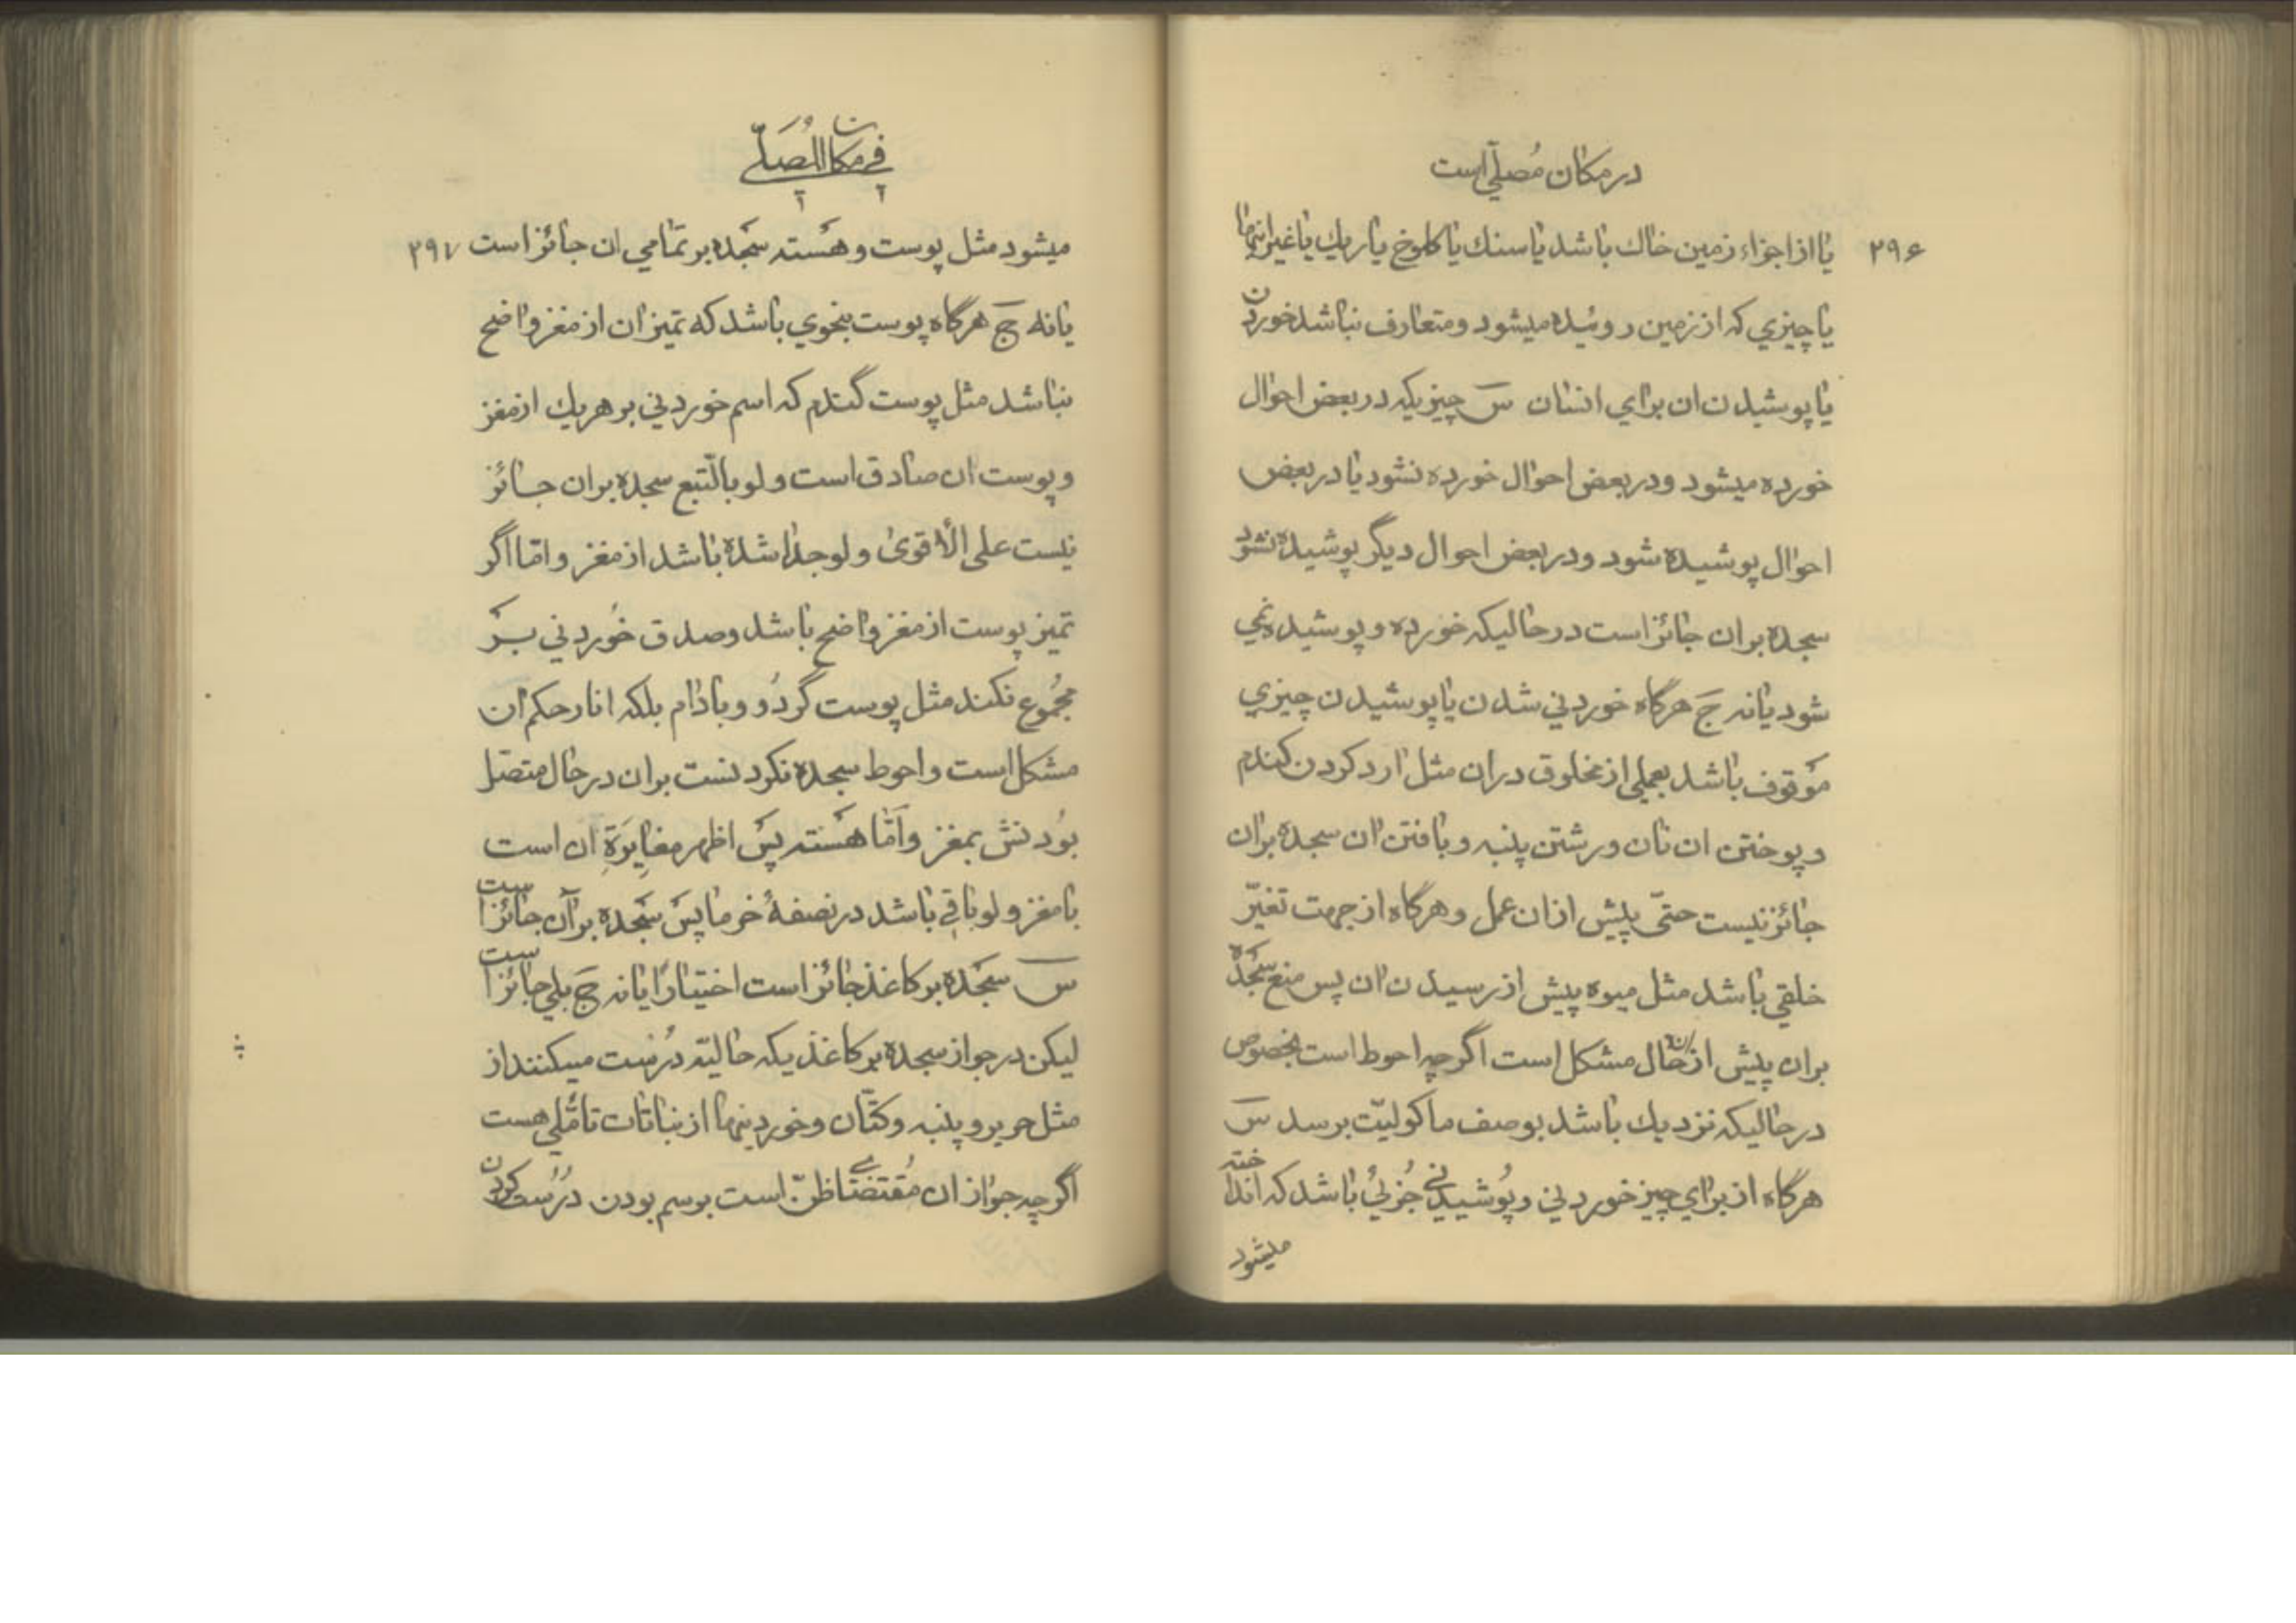 در مکان مُصلّي است
۲۹۶
یا از اجزاء زمین خاك باشد یا سنك یا کلوخ یا ریك یا غیر اینها
یا چیزي که از زمین روئیده میشود و متعارف نباشد خوردن
یا پوشیدن ان براي انسان سَ چیزیکه در بعض احوال
خورده میشود و در بعض احوال خورده نشود یا در بعض
احوال پوشیده شود و در بعض احوال دیگر پوشیده نشود
سجده بر ان جائز است در حالیکه خورده و پوشیده نمي
شود یا نه جَ هرگاه خوردني شدن یا پوشیدن چیزي
موَقوف باشد بعملي از مخلوق در ان مثل ارد کردن کندم
و پوختن ان نان و رشتن پنبه و بافتن ان سجده بر ان
جائز نیست حتّي پیش از ان عمل و هرگاه از جهت تغیّر
خلقي باشد مثل میوه پیش از رسیدن ان پس منع سَجَده
بر ان پیش از ان حال مشکل است اگر چه احوط است بخصوص
در حالیکه نزدیك باشد بوصف ماکولیّت برسد سَ
هرگاه از براي چیز خوردني و پوُشیدني جُزئيُ باشد که انداخته
میشود
في مکان المُصَلّي
۲۹۷
میشود مثل پوست و هَسته سجَده بر تمامي ان جائز است
یا نه جَ هرگاه پوست بنحوي باشد که تمیز ان از مغز واضح
نباشد مثل پوست گندم که اسم خوردني بر هر یك از مغز
و پوست ان صادق است ولو بالتّبع سجده بر ان جائز
نیست علی الأقویٰ ولو جدا شده باشد از مغز و امّا اگر
تمیز پوست از مغز واضح باشد و صدق خوُردني بَر
مجموُع نکند مثل پوست گردُو و بادام بلکه انار حکم ان
مشکل است و احوط سجده نکردنست بر ان در حال متصل
بوُدنش بمغز و اَمّا هَسته پسَ اظهر مغایِرَةِ ان است
با مغز ولو باقي باشد در نصفهٔ خرما پسَ سجَده بر آن جائز است
سَ سجَده بر کاغذ جائز است اختیارًا یا نه جَ بلي جائز است
لیکن در جواز سجده بر کاغذیکه حالیّه درُست میکنند از
مثل حریر و پنبه و کتّان و خوردینها از نباتات تامّلي هست
اگر چه جواز ان مُقتضاي ظنّ است بر سم بودن درُست کردن